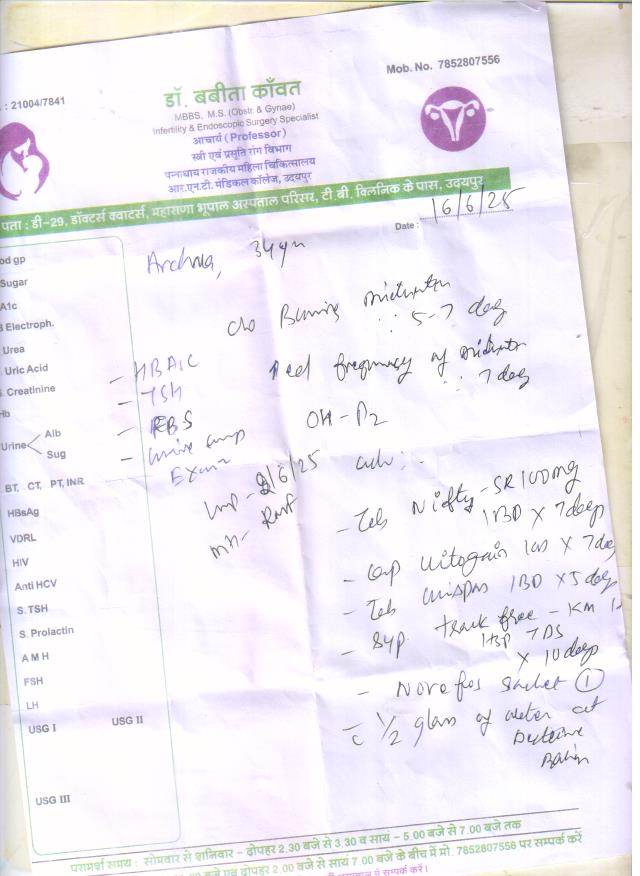 : 21004/7841
Mob. No. 7852807556
डॉ. बबीता काँवत
MBBS, M.S. (Obstr. & Gynae)
Infertility & Endoscopic Surgery Specialist
आचार्य ( Professor )
स्त्री एवं प्रसूति रोग विभाग
पन्नाधाय राजकीय महिला चिकित्सालय
आर.एन.टी. मेडिकल कॉलेज, उदयपुर
पता : डी-29, डॉक्टर्स क्वाटर्स, महाराणा भूपाल अस्पताल परिसर, टी.बी. क्लिनिक के पास, उदयपुर
Date : 16/6/25
Archna, 34 yr
od gp
Sugar
A1c
Electroph.
Urea
Uric Acid
Creatinine
Hb
Urine Alb
Sug
BT, CT, PT, INR
HBsAg
VDRL
HIV
Anti HCV
S. TSH
S. Prolactin
A M H
FSH
LH
USG I USG II
USG III
c/o Burning
5-7 day
frequency of
7 day
- HBA1C
- TSH
- RBS
- Urine
OH - P2
/6/25 adv :-
- Tab Nifty-SR 100mg
1BD X 7 days
- Cap X 7 day
- Tab 1BD X 5 day
- Syp. free - KM
TDS
X 10 days
- sachet 1
1/2 glass of water at
परामर्श समय : सोमवार से शनिवार - दोपहर 2.30 बजे से 3.30 व सायं - 5.00 बजे से 7.00 बजे तक
दोपहर 2.00 बजे से सायं 7.00 बजे के बीच में मो. 7852807556 पर सम्पर्क करें
में सम्पर्क करें।